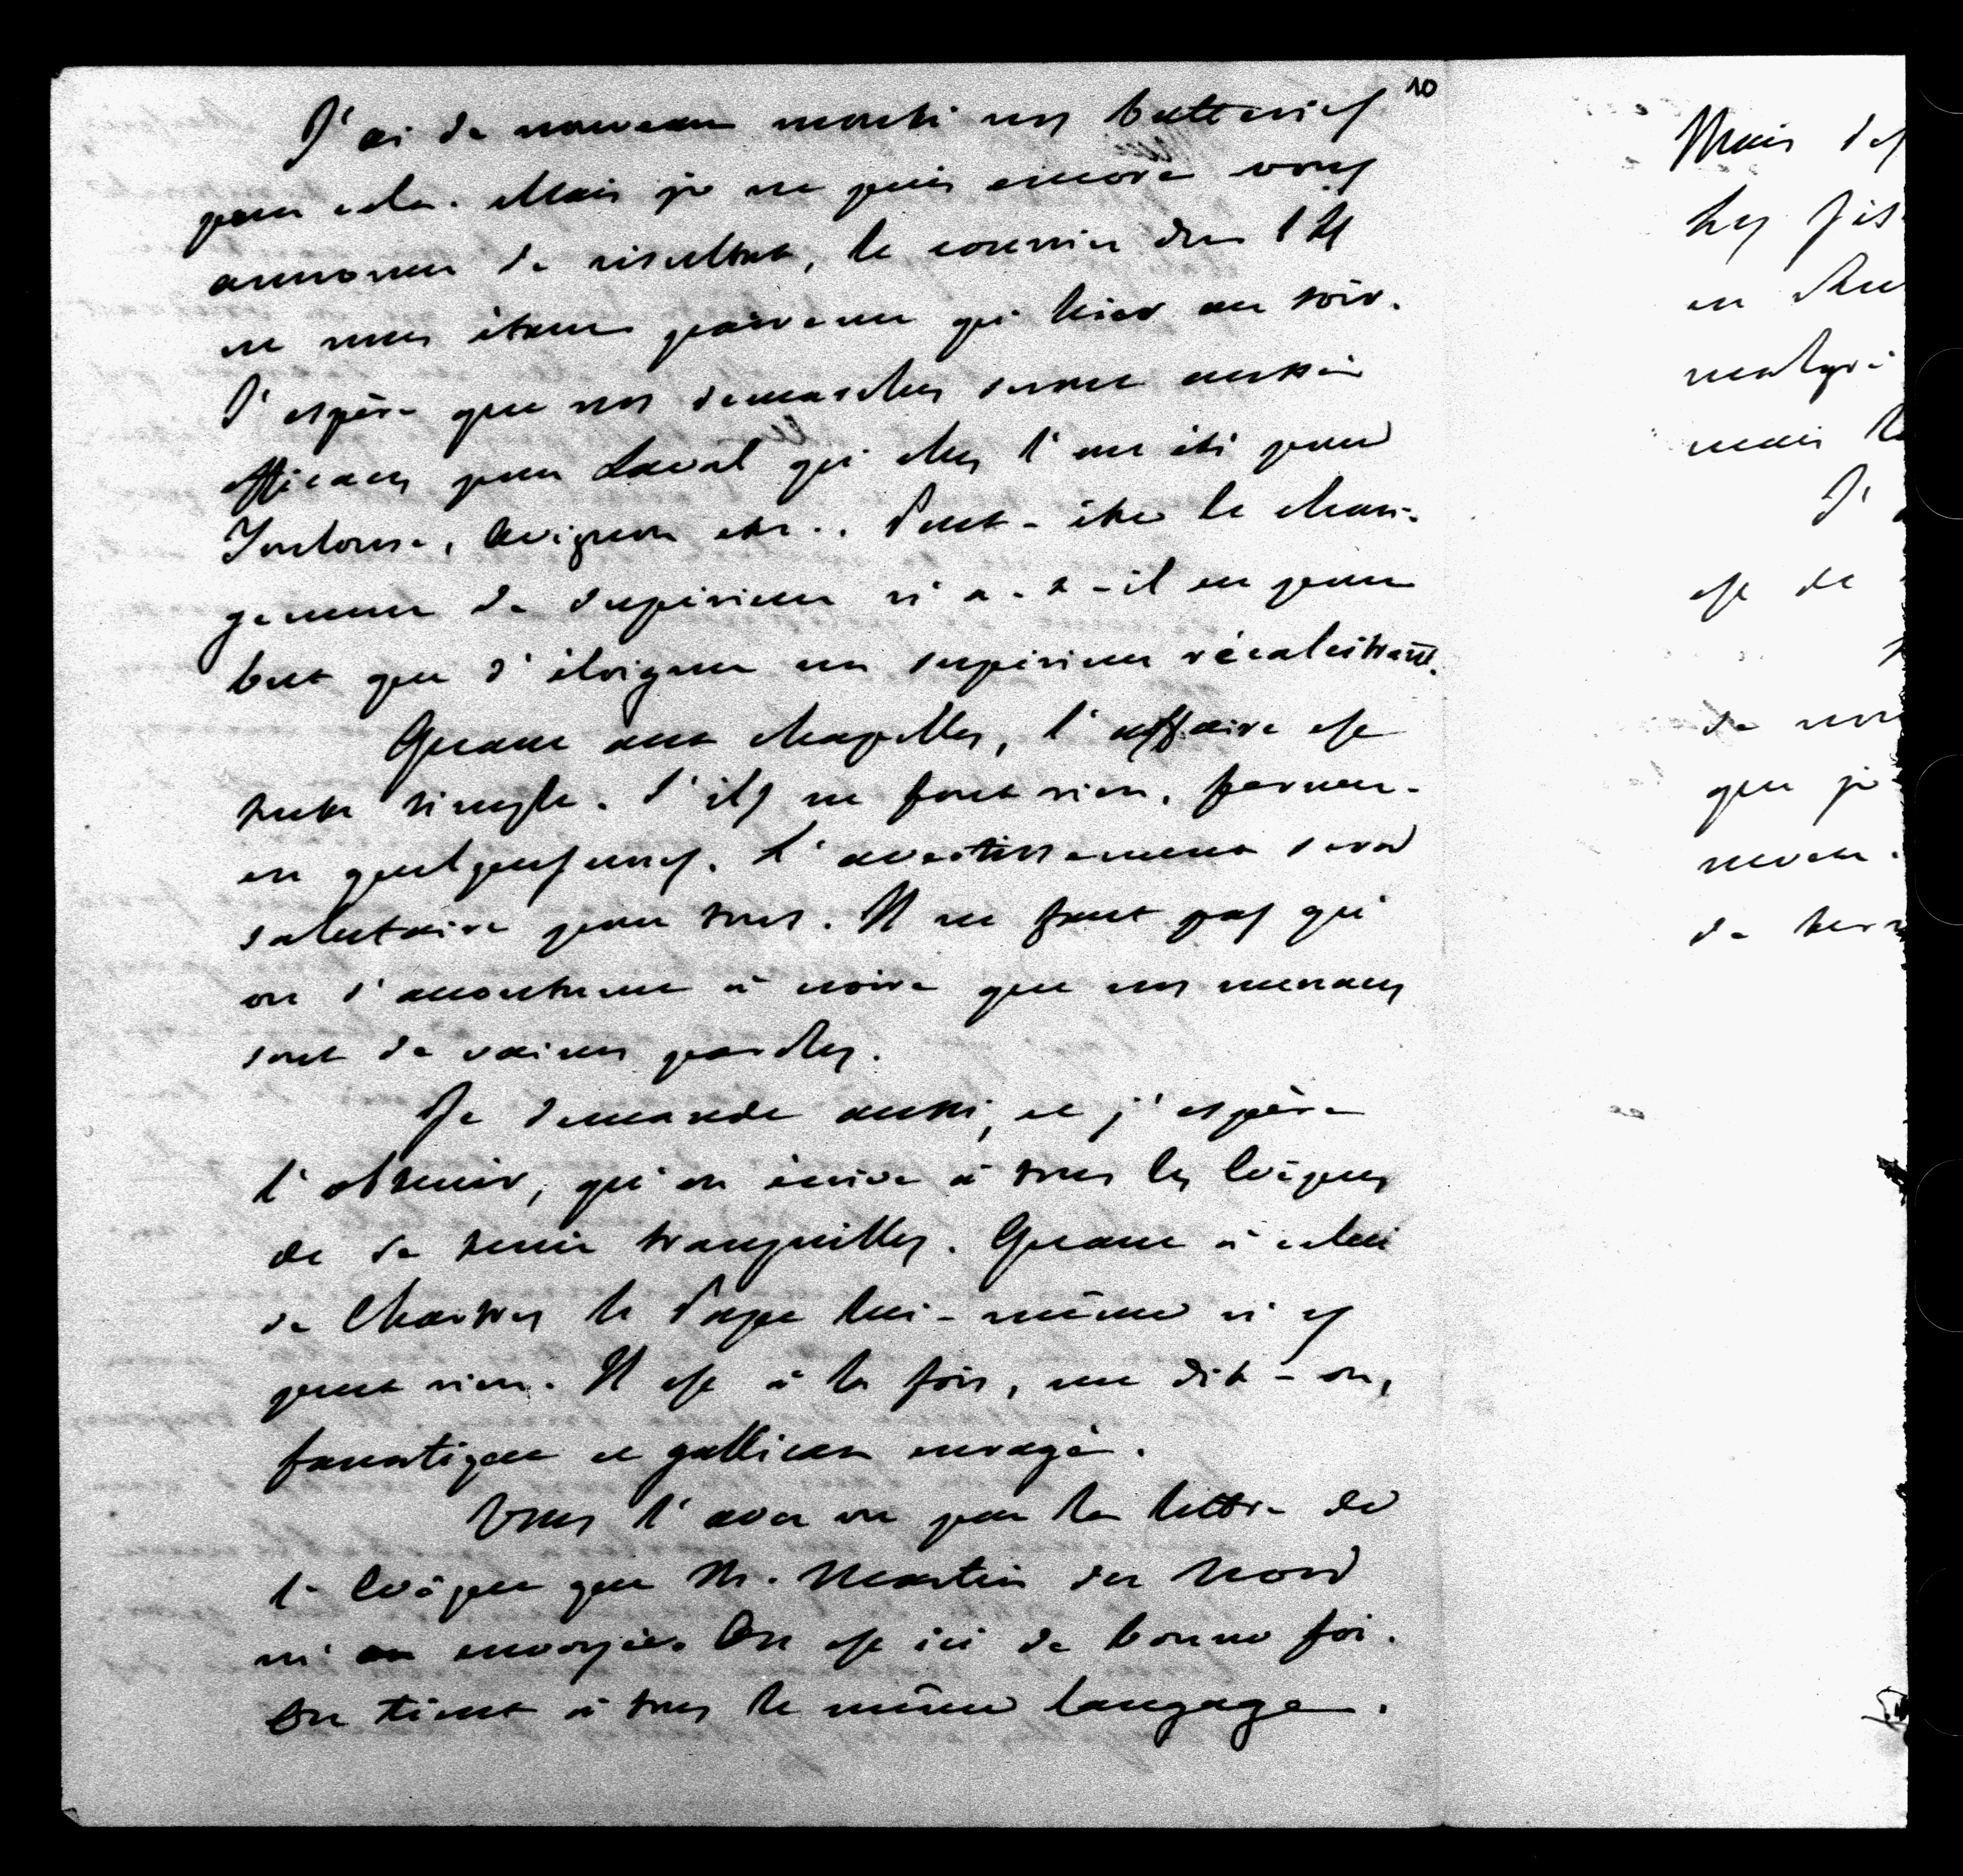 10
J'ai de nouveau monté nos batteries
pour cela. Mais je ne puis encore vous
annoncer de résultat, le courrier du 14
ne nous étant parvenu qu'hier au soir.
J'espère que nos démarches seront aussi
efficaces pour Laval qu'elles l'ont été pour
Toulouse, Avignon etc.. Peut-être le chan-
gement de supérieur n'a-t-il eu pour
but que d'éloigner un supérieur récalcitrant.
Quant aux chapelles, l'affaire est
toute simple. S'ils ne font rien, fermez-
en quelques unes. L'avertissement sera
salutaire pour tous. Il ne faut pas qu'
on s'accoutume à croire que nos menaces
sont de vaines paroles.
Je demande aussi, et j'espère
l'obtenir, qu'on écrive à tous les Evêques
de se tenir tranquilles. Quant à celui
de Chartres le Pape lui-même n'y
peut rien. Il est à la fois, me dit-on,
fanatique et gallican enragé.
Vous l'avez vu par la lettre de
l'Evêque que M. Martin du Nord
m'a envoyée. On est ici de bonne foi.
On tient à tous le même langage.
Mais
les
en
malgré
mais
J'
est de
de
que je
neveu.
de